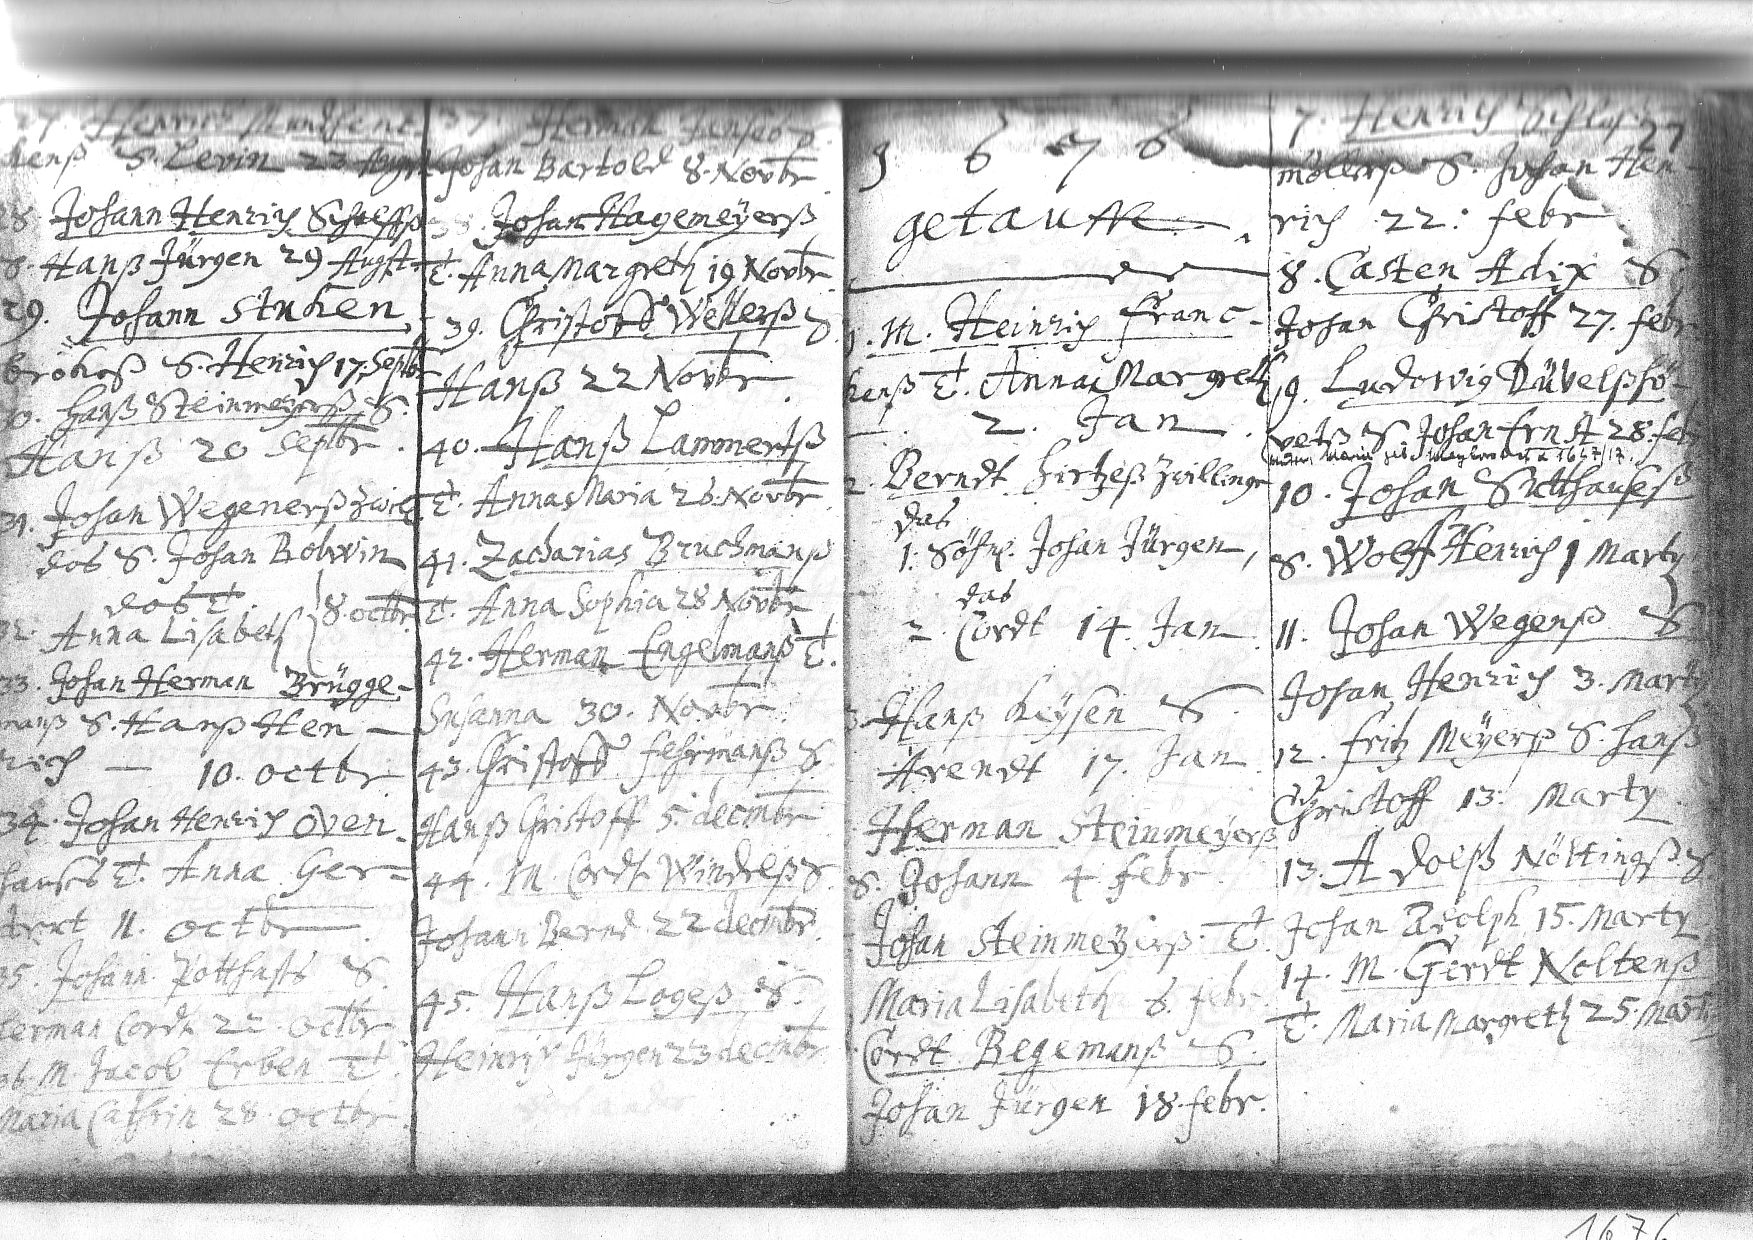 27. Henrich
S. Levin 23 Augst
28. Johann Henrich Schaeffß
S. Hanß Jürgen 29 Augst
29. Johann Stuken
brökeß S. Henrich 17. Septbr
30. Hanß Steinmeyerß S.
Hanß 20 Septbr.
31. Johan Wegenerß Zwill.
das S. Johan Bolwin
das T.
32. Anna Lisabeth } 8. octbr
33. Johan Herman Brügge-
manß S. Hanß Hen-
rich — 10. octbr
34. Johan Henrich Oven-
hauseß T. Anna Ger-
trut 11. octbr.
35. Johann Potthasts S.
Herman Cordt 22. octbr
36. M. Jacob Erben T.
Maria Cathrin 28. octbr.
37. Herman S.
Johan Bartold 8. Novbr
38. Johan Hagemeyerß
T. Anna Margreth 19 Novbr
39. Christoff Wellerß S.
Hanß 22 Novbr.
40. Hanß Lammertß
T. Anna Maria 26. Novbr
41. Zacharias Bruchmanß
T. Anna Sophia 28 Novbr
42. Herman Engelmanß T.
Susanna 30. Novbr
43. Christoff Fehrmanß S.
Hanß Christoff 5. decmbr
44. M. Cordt Windelß S.
Johann Bernd 22 decmbr.
45. Hanß Logeß S.
Heinrich Jürgen 23 decmbr
1676
getauffte.
1. M. Heinrich Franc-
kenß T. Anna Margreth
2. Jan.
2. Berndt Hirtzeß Zwillinge
das
1. Söhn. Johan Jürgen,
das
2. Cordt 14. Jan.
3. Hanß Keysen S.
Arendt 17. Jan.
Herman Steinmeyerß
S. Johann 4 febr.
Johan Steinmeyerß T.
Maria Lisabeth 6. febr.
Cordt Begemanß S.
Johan Jürgen 18. febr.
27
7. Henrich
möllerß S. Johan Hen-
rich 22. febr
8. Casten Adix S.
Johan Christoff 27. febr
9. Ludowig Düvelßhö-
vetß S. Johan Ernst 28. febr
10. Johan Sutthauseß
S. Wolff Henrich 1 Marty
11. Johan Wegenß S.
Johan Henrich 3. Marty
12. Fritz Meyerß S. Hanß
Christoff 13. Marty
13. Adolß Nöltingß S.
Johan Adolph 15. Marty
14. M. Gerdt Noltenß
T. Maria Margreth 25. Marty
1676